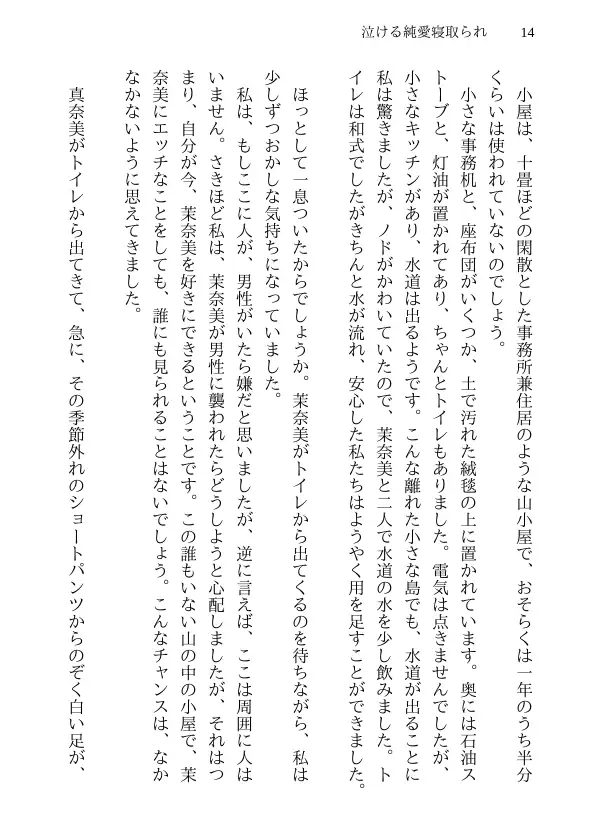 泣ける純愛寝取られ
14
小屋は、十畳ほどの閑散とした事務所兼住居のような山小屋で、おそらくは一年のうち半分
くらいは使われていないのでしょう。
小さな事務机と、座布団がいくつか、土で汚れた絨毯の上に置かれています。奥には石油ス
トーブと、灯油が置かれてあり、ちゃんとトイレもありました。電気は点きませんでしたが、
小さなキッチンがあり、水道は出るようです。こんな離れた小さな島でも、水道が出ることに
私は驚きましたが、ノドがかわいていたので、茉奈美と二人で水道の水を少し飲みました。ト
イレは和式でしたがきちんと水が流れ、安心した私たちはようやく用を足すことができました。
ほっとして一息ついたからでしょうか。茉奈美がトイレから出てくるのを待ちながら、私は
少しずつおかしな気持ちになっていました。
私は、もしここに人が、男性がいたら嫌だと思いましたが、逆に言えば、ここは周囲に人は
いません。さきほど私は、茉奈美が男性に襲われたらどうしようと心配しましたが、それはつ
まり、自分が今、茉奈美を好きにできるということです。この誰もいない山の中の小屋で、茉
奈美にエッチなことをしても、誰にも見られることはないでしょう。こんなチャンスは、なか
なかないように思えてきました。
真奈美がトイレから出てきて、急に、その季節外れのショートパンツからのぞく白い足が、